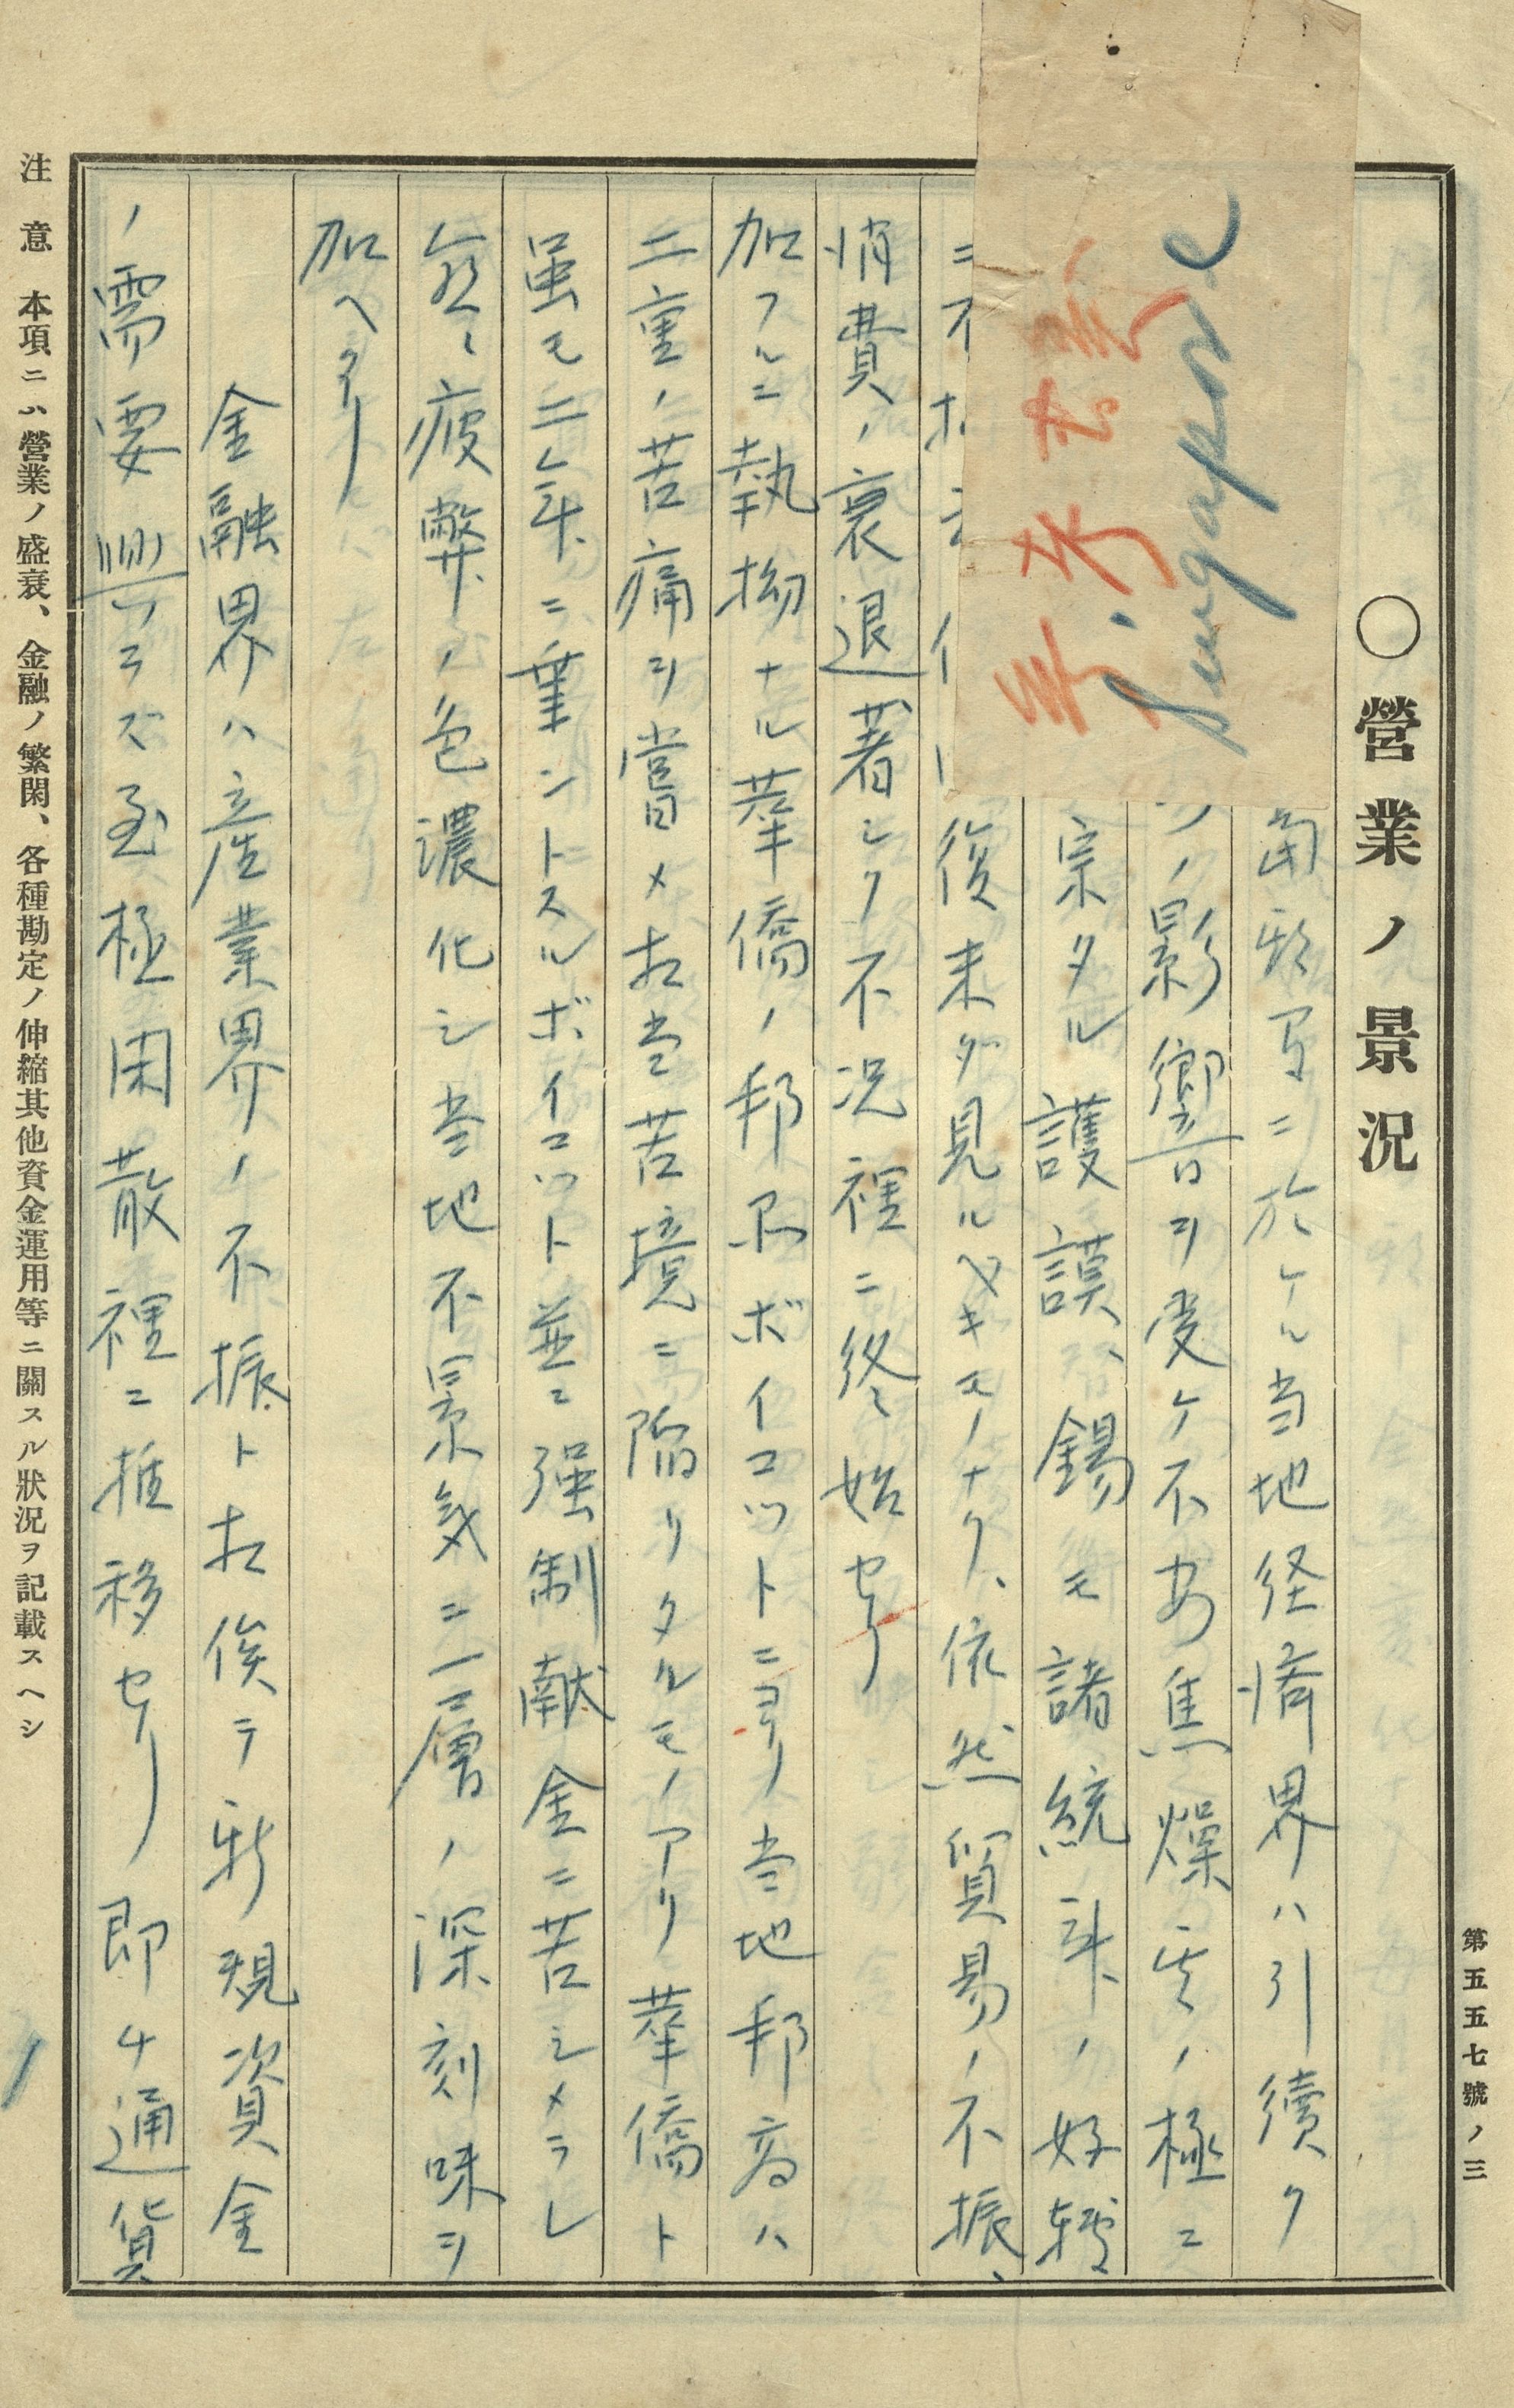 ○營業ノ景況
Singapore
ニ於ケル当地経済界ハ引續ク
ノ影響ヲ受ケ不安焦燥ノ極ニ
宗タル護謨、錫モ諸統計ノ好轉
後未ダ見ルベキモノナク、依然貿易ノ不振、
消費ノ衰退著シク不況裡ニ終始セリ
加フルニ執拗ナル華僑ノ邦品ボイコットニヨリ当地邦商ハ
二重ノ苦痛ヲ嘗メ尚苦境ニ陥リタルモノアリ華僑ト
虽モ二年ニ垂ントスルボイコット並ニ强制献金ニ苦シメラレ
愈々疲弊ノ色濃化シ当地不景気ニ一層ノ深刻味ヲ
加ヘタリ
金融界ハ産業界ノ不振ト相俟テ新規資金
ノ需要興ラズ至極閑散裡ニ推移セリ即チ通貨
注意 本項ニハ營業ノ盛衰、金融ノ繁閑、各種勘定ノ伸縮其他資金運用等ニ關スル狀況ヲ記載スヘシ
第五五七號ノ三